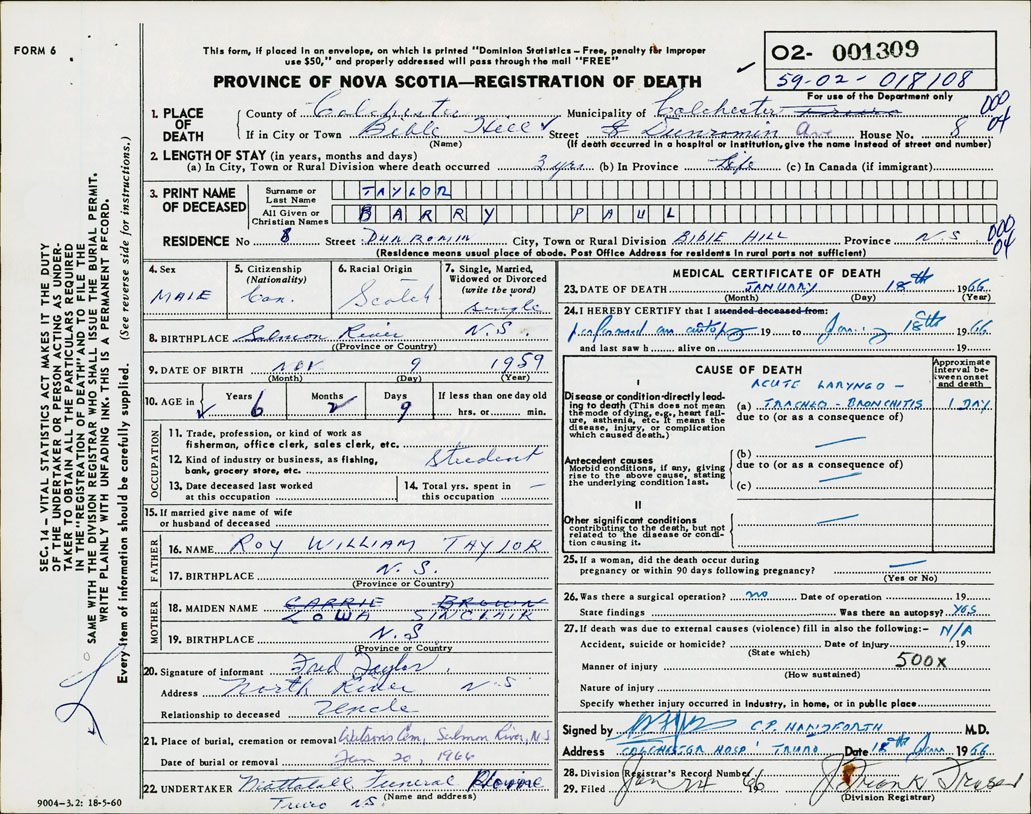 FORM 6
This form, if placed in an envelope, on which is printed "Dominion Statistics – Free, penalty for improper
use $50," and properly addressed will pass through the mail "FREE"
PROVINCE OF NOVA SCOTIA—REGISTRATION OF DEATH
O2- 001309
59-02-018108
For use of the Department only
SEC. 14 – VITAL STATISTICS ACT MAKES IT THE DUTY
OF THE UNDERTAKER OR PERSON ACTING AS UNDER-
TAKER TO OBTAIN ALL THE PARTICULARS REQUIRED
IN THE "REGISTRATION OF DEATH" AND TO FILE THE
SAME WITH THE DIVISION REGISTRAR WHO SHALL ISSUE THE BURIAL PERMIT.
WRITE PLAINLY WITH UNFADING INK. THIS IS A PERMANENT RECORD.
Every item of information should be carefully supplied. (See reverse side for instructions.)
1. PLACE OF DEATH County of Colchester Municipality of Colchester 000 04
If in City or Town Bible Hill Street 8 Dunromin Ave House No. 8
(Name) (If death occurred in a hospital or institution, give the name instead of street and number)
2. LENGTH OF STAY (in years, months and days)
(a) In City, Town or Rural Division where death occurred 3 yrs (b) In Province Life (c) In Canada (if immigrant)
3. PRINT NAME OF DECEASED Surname or Last Name TAYLOR
All Given or Christian Names BARRY PAUL
RESIDENCE No 8 Street DUNROMIN City, Town or Rural Division BIBLE HILL Province N.S 000 04
(Residence means usual place of abode. Post Office Address for residents in rural parts not sufficient)
4. Sex MALE
5. Citizenship (Nationality) Can.
6. Racial Origin Scotch
7. Single, Married, Widowed or Divorced (write the word) single
8. BIRTHPLACE Salmon River N.S.
(Province or Country)
9. DATE OF BIRTH NOV 9 1959
(Month) (Day) (Year)
10. AGE in Years 6 Months 2 Days 9 If less than one day old hrs. or min.
OCCUPATION
11. Trade, profession, or kind of work as
fisherman, office clerk, sales clerk, etc.
12. Kind of industry or business, as fishing,
bank, grocery store, etc. Student
13. Date deceased last worked
at this occupation
14. Total yrs. spent in
this occupation –
15. If married give name of wife
or husband of deceased
FATHER
16. NAME ROY WILLIAM TAYLOR
17. BIRTHPLACE N.S.
(Province or Country)
MOTHER
18. MAIDEN NAME CARRIE BROWN
ZOWA SINCLAIR
19. BIRTHPLACE N.S
(Province or Country)
20. Signature of informant Fred Taylor
Address North River N.S
Relationship to deceased Uncle
21. Place of burial, cremation or removal Watsons Cem, Salmon River, N.S
Date of burial or removal Jan 20, 1966
22. UNDERTAKER Mattatall Funeral Home
(Name and address)
Truro N.S.
9004–3.2: 18-5-60
MEDICAL CERTIFICATE OF DEATH
23. DATE OF DEATH JANUARY 18th 1966
(Month) (Day)
24. I HEREBY CERTIFY that I attended deceased from:
performed an autopsy 19 to January 18th 1966
and last saw h alive on 19
CAUSE OF DEATH
Approximate interval between onset and death
I
Disease or condition directly lead-
ing to death (This does not mean
the mode of dying, e.g., heart fail-
ure, asthenia, etc. It means the
disease, injury, or complication
which caused death.)
ACUTE LARYNGO –
(a) TRACHEO - BRONCHITIS 1 DAY
due to (or as a consequence of)
Antecedent causes
Morbid conditions, if any, giving
rise to the above cause, stating
the underlying condition last.
(b) —
due to (or as a consequence of)
(c) —
II
Other significant conditions
contributing to the death, but not
related to the disease or condi-
tion causing it.
—
25. If a woman, did the death occur during
pregnancy or within 90 days following pregnancy? —
(Yes or No)
26. Was there a surgical operation? no Date of operation 19
State findings Was there an autopsy? YES
27. If death was due to external causes (violence) fill in also the following:– N/A
Accident, suicide or homicide? Date of injury 19
(State which)
Manner of injury 500X
(How sustained)
Nature of injury
Specify whether injury occurred in industry, in home, or in public place
Signed by C.P. HANDFORTH M.D.
Address COLCHESTER HOSP' TRURO Date 18th Jan. 1966
28. Division Registrar's Record Number
29. Filed Jan 24 66 J Frank Fraser
(Division Registrar)